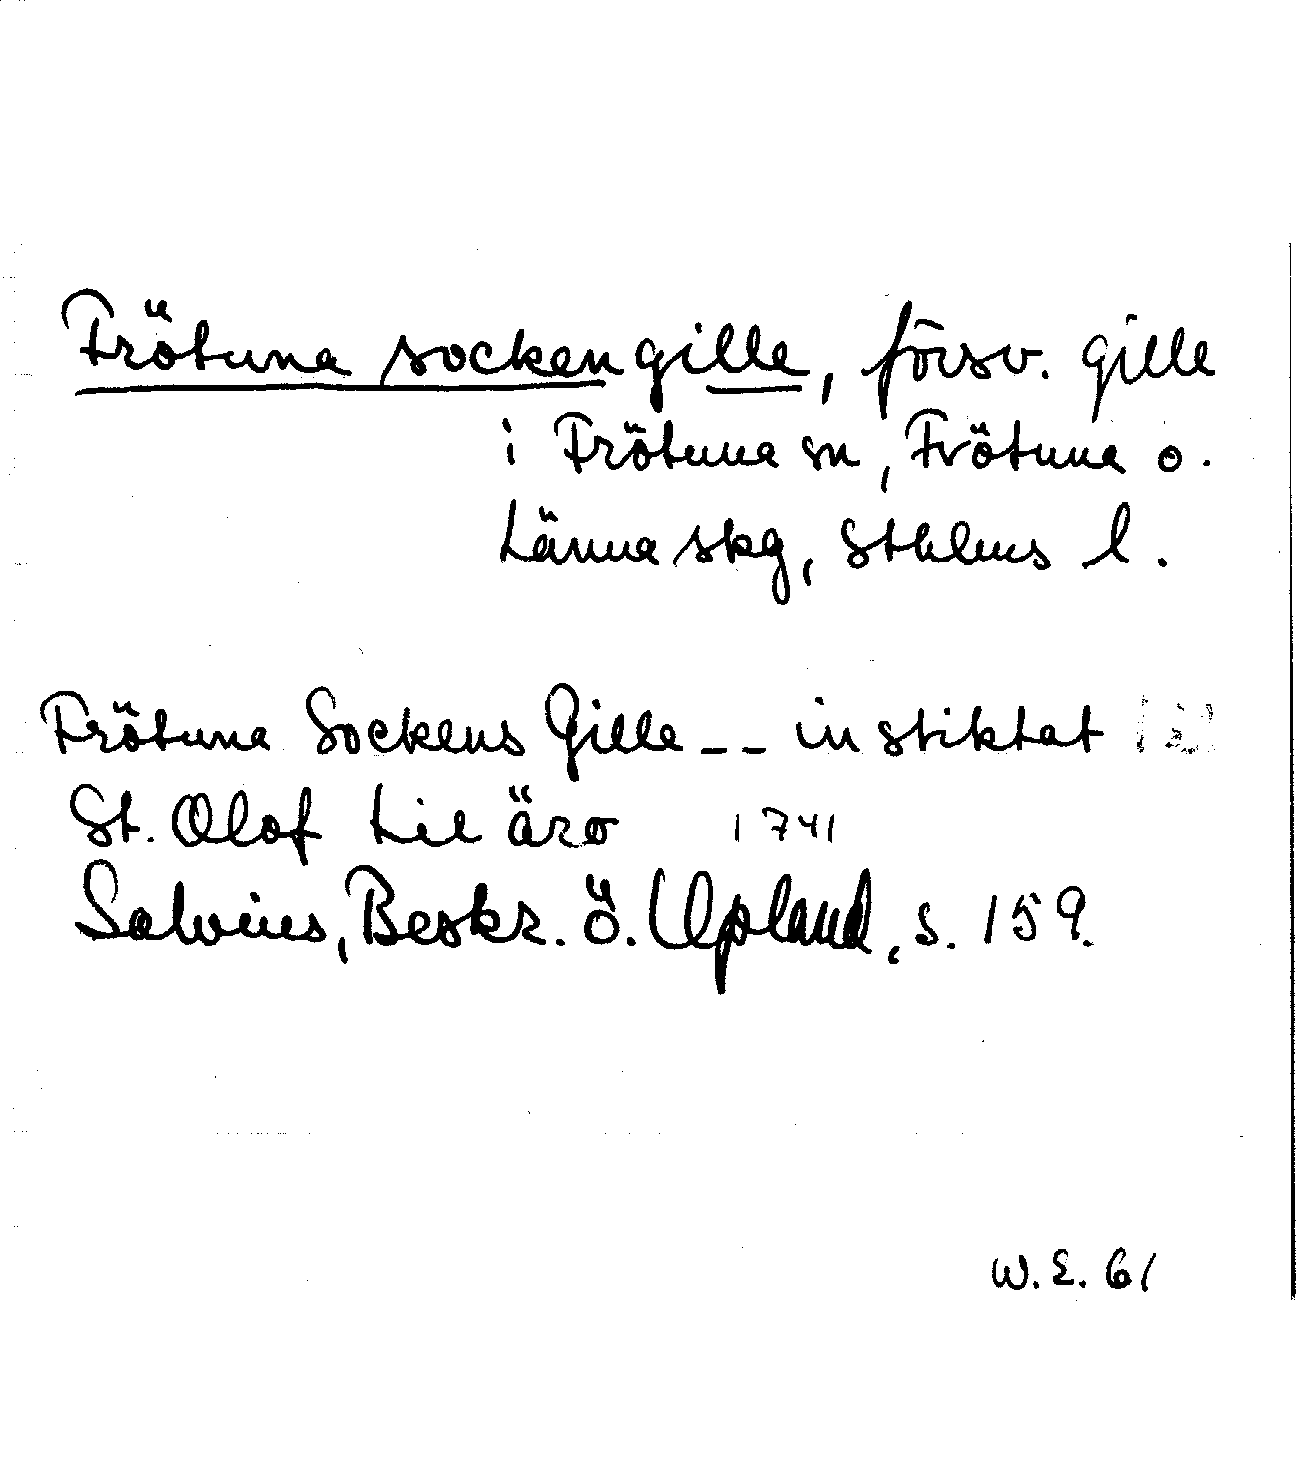 Frötuna sockengille, försv. gille
i Frötuna sn, Frötuna o.
Länna skg, Sthlms l.
Frötuna Sockens Gille -- instiktat
St. Olof til äro 1741
Salvius, Beskr. ö. Upland, s. 159.
W.E. 61